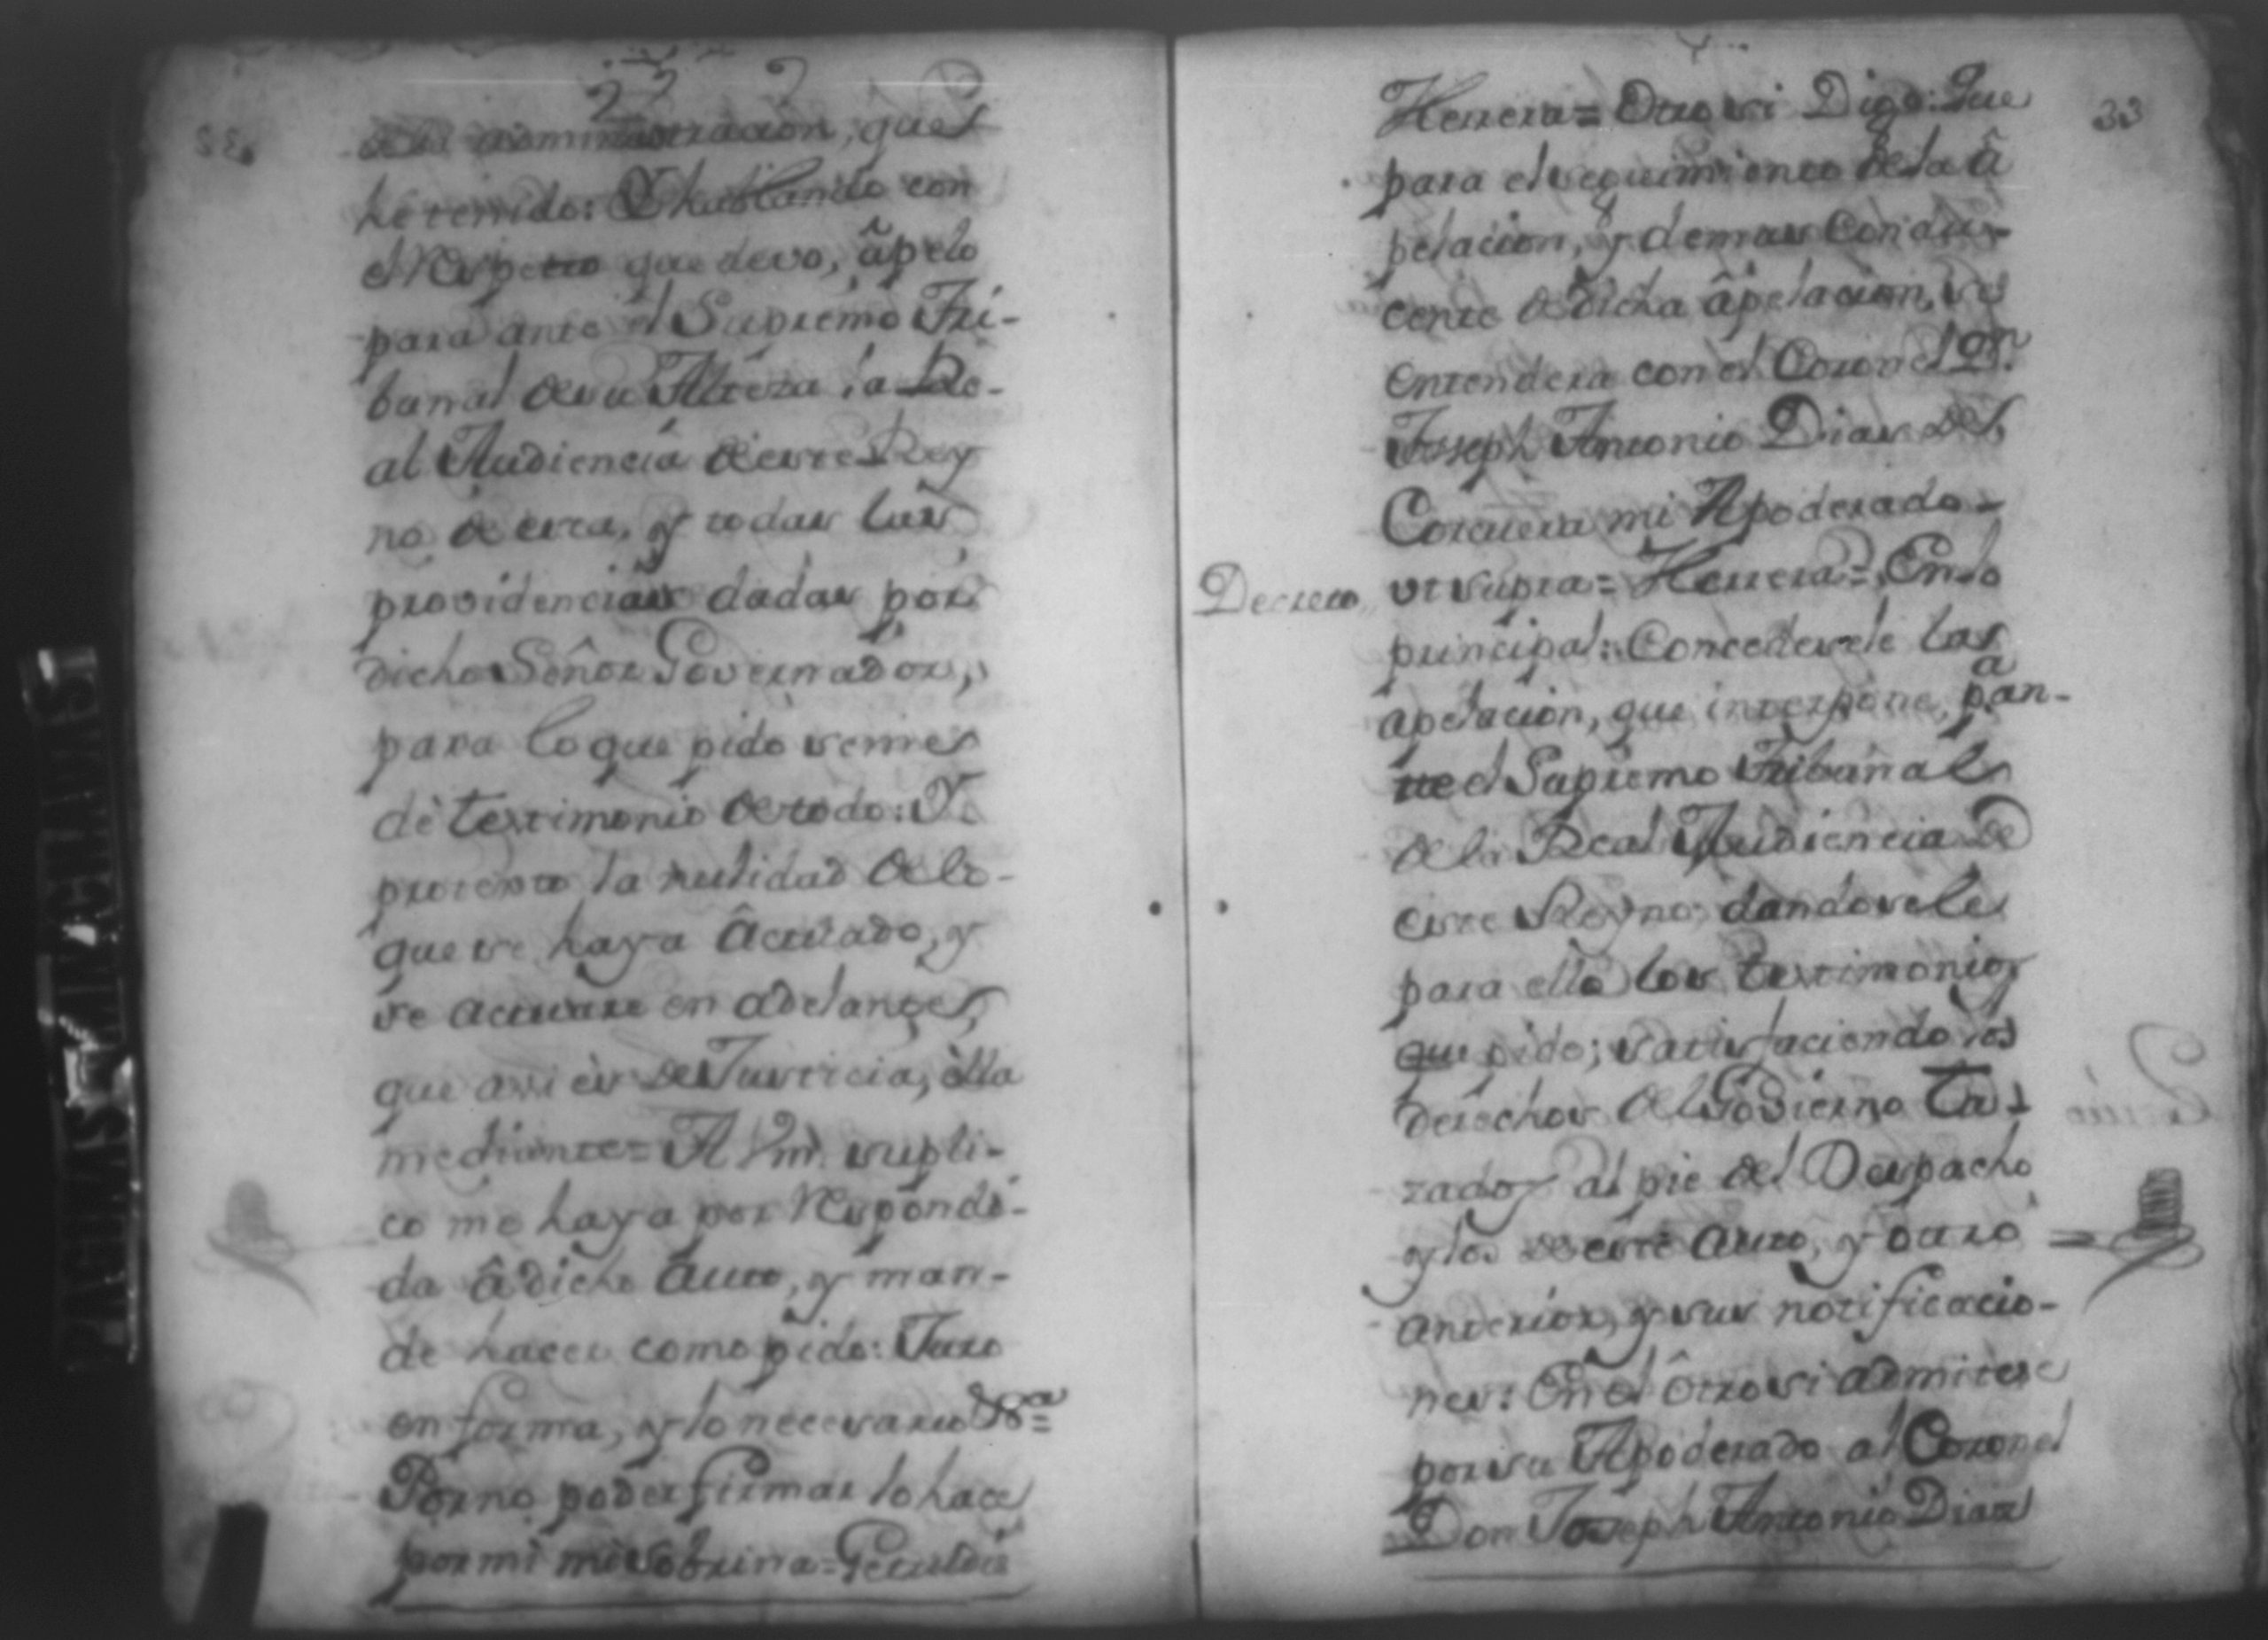 de la administracion, que
hé tenido: Y hablando con
el Respetto que devo, âpelo
para ante el Supremo Tri-
bunal de su Alteza la Re-
al Audiencia de este Rey
no de esta, y todas las
providencias dadas por
dicho Señor Governador,
para lo que pido se me
dè testimonio de todo: Y
protexto la nulidad de lo
que se haya âctuado, y
se actuare en adelante,
que assi ès de Justicia, èlla
mediante= A Vm. supli-
co me haya por Respondi-
da â dicho Auto, y man-
de hacer como pido: Juro
en forma, y lo necesario &ª=
Por no poder firmar lo hace
por mi mi sobrina= Getrudis
33
Herrera= Otro si Digo: Que
para el seguimiento de la â
pelacion, y demas Condu-
cente de dicha âpelacion, se
entendera con el Coronel Dn.
Joseph Antonio Dias de
Corcuera mi Apoderado=
Decreto,, ut supra= Herrera= En lo
principal: Concedesele la
apelacion, que interpone, pª an-
te el Supremo Tribunal
de la Real Audiencia de
este Reyno, dandosele
para ello los testimonios
que pide; satisfaciendo los
derechos del Govierno ta-
zados al pie del Despacho
y los de este auto, y otro
anterior, y sus notificacio-
nes: En el ôtro si admitese
por su Apoderado al Coronel
Don Joseph Antonio Diaz